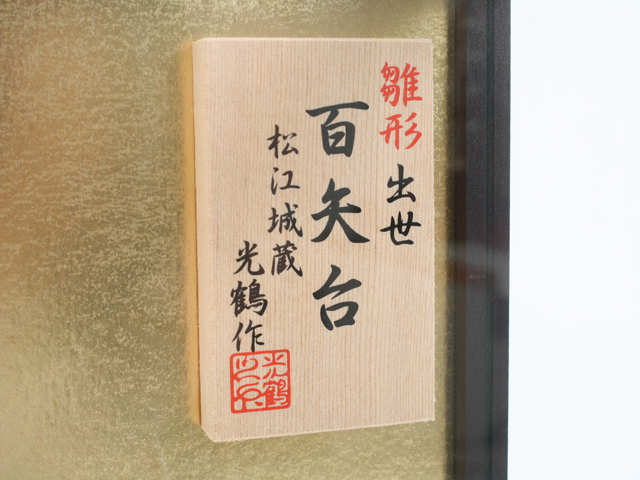 雛形出世
百矢台
松江城蔵
光鶴作
光鶴